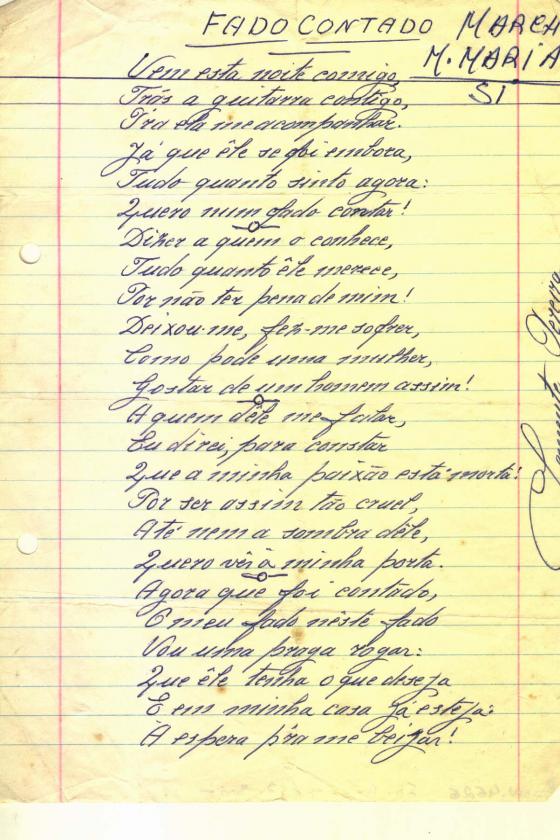 FADO CONTADO MARCH
M. MARIA
SI
Vem esta noite comigo,
Trás a guitarra contigo,
P'ra ela me acompanhar.
Já que êle se foi embora,
Tudo quanto sinto agora:
Quero num fado contar!
Dizer a quem o conhece,
Tudo quanto êle merece,
Por não ter pena de mim!
Deixou-me, fez-me sofrer,
Como pode uma mulher,
Gostar de um homem assim!
A quem dêle me falar,
Eu direi, para constar
Que a minha paixão está morta!
Por ser assim tão cruel,
Até nem a sombra dêle,
Quero vêr à minha porta.
Agora que foi contado,
O meu fado nêste fado
Vou uma praga rogar:
Que êle tenha o que deseja
E em minha casa já esteja:
À espera p'ra me beijar!
Pereira